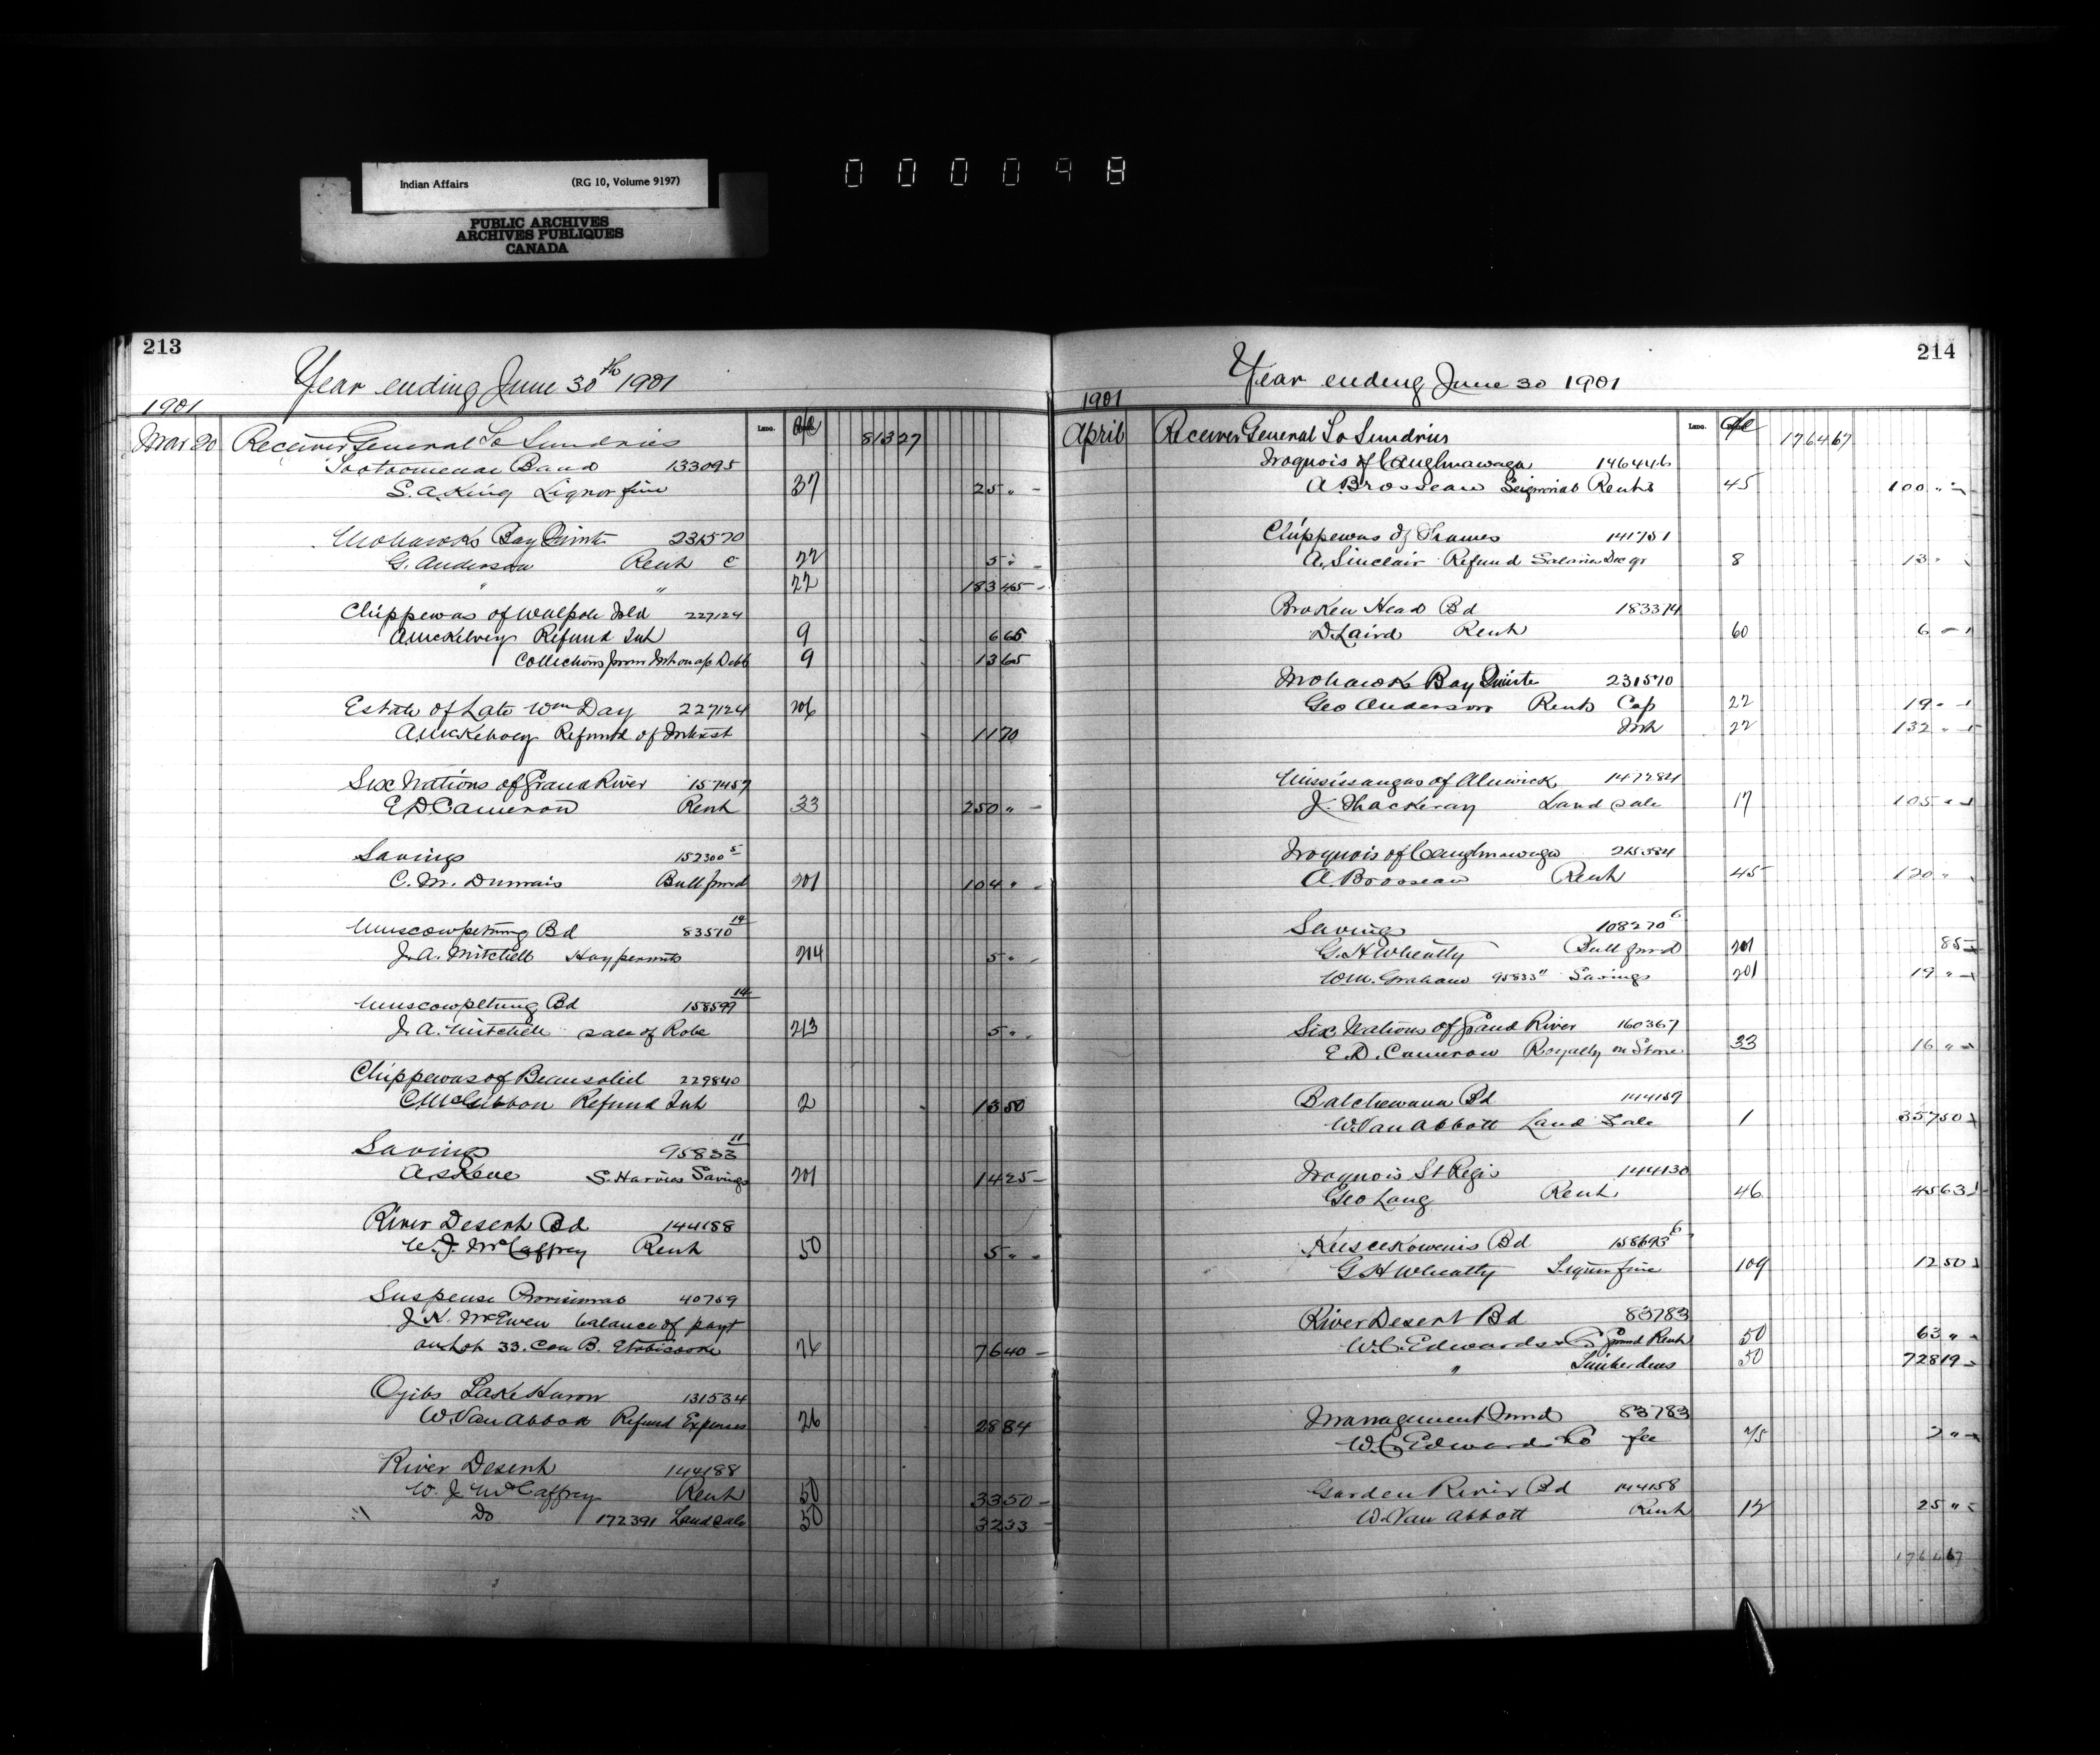 Indian Affairs (RG 10, Volume 9197)
PUBLIC ARCHIVES
ARCHIVES PUBLIQUES
CANADA
000098
213
Year ending June 30th 1901
1901
Mar 20 Receiver General To Sundries 813 27
Band 133095
S. A. King Liquor fine 37 25 "
Mohawks Bay Quinte 231570
G. Anderson Rent C 22 5 "
" " 22 183 45
Chippewas of Walpole Isld 227124
A McKelvey Refund Int 9 6 65
Collections from Int on a/c Debts 9 13 65
Estate of Late Wm Day 227124 206
A McKelvey Refund of Interest 11 70
Six Nations of Grand River 157457
E D Cameron Rent 33 250 "
Savings 152300 5
C. M. Dumais Bull fund 201 104 "
Muscowpetung Bd 83570 14
J. A. Mitchell Hay permits 214 5 "
Muscowpetung Bd 158599 14
J. A. Mitchell sale of Robe 213 5 "
Chippewas of Beausoliel 229840
C McGibbon Refund Int 2 13 50
Savings 95833 11
S. Harries Savings 201 14 25
River Desert Bd 144188
W. J. McCaffrey Rent 50 5 "
Suspense Provisional 40759
J. K. McEwen balance of payt
on Lot 33. Con B. Etobicoke 76 76 40
Ojibs Lake Huron 131534
W. Van Abbott Refund Expenses 26 28 84
River Desert 144188
W. J. McCaffrey Rent 50 33 50
Do 172391 Land sale 50 32 33
214
Year ending June 30 1901
1901
April Receiver General To Sundries 1764 67
Iroquois of Caughnawaga 146446
A Brosseau Seignorial Rents 45 100 "
Chippewas of Thames 141751
A. Sinclair Refund Salaries Dec qr 8 13 "
Broken Head Bd 183374
D Laird Rent 60 6
Mohawk Bay Quinte 231570
Geo Anderson Rents Cap 22 19 "
Int 22 132 "
Mississaugas of Alnwick 147284
J. Thackeray Land sale 17 105 "
Iroquois of Caughnawaga 215384
A. Brosseau Rent 45 120 "
Savings 108270 6
G. H Wheatly Bull fund 201 85
Wm. Graham 95833 11 Savings 201 19 "
Six Nations of Grand River 160367
E. D. Cameron Royalty on Stone 33 16 "
Batchewana Bd 144159
W. Van Abbott Land Sale 1 357 50
Iroquois St Regis 144130
Geo Long Rent 46 45 63
Keeseekowenis Bd 158693 6
G H Wheatly Liquor fine 109 12 50
River Desert Bd 83783
W. C. Edwards & Co ground Rent 50 63 "
" Timber dues 50 728 19
Management Fund 83783
W. C. Edwards & Co fee 75 2 "
Garden River Bd 144158
W. Van Abbott Rent 12 25 "
1764 67